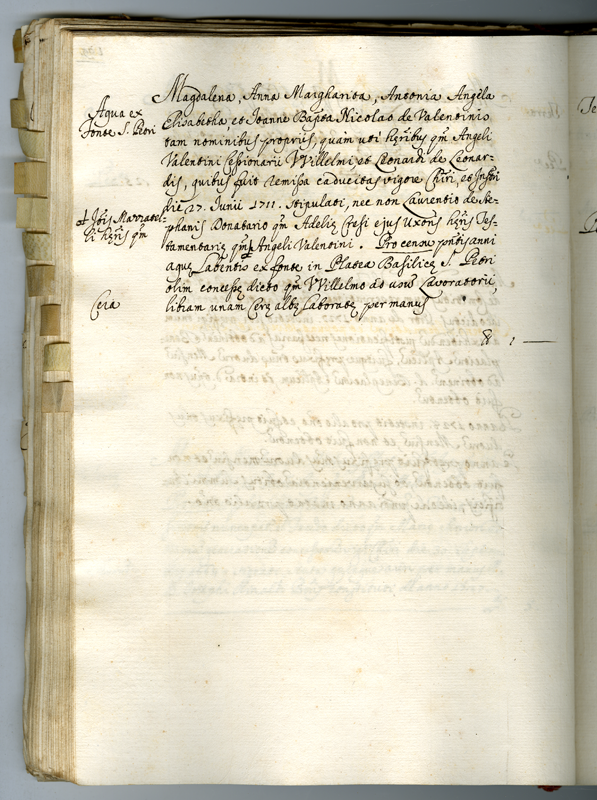 Aqua ex
Fonte S. Petri
Magdalena, Anna Margharita, Antonia Angela
Elisabetha, et Joanne Bapta Nicolao de Valentinis
tam nominibus propriis, quàm uti hęribus qm̃ Angeli
Valentini Cessionarii VVillelmi et Leonardi de Leonar-
dis, quibus fuit remissa caducitas vigore Chiri, et Instri
die 27. Junii 1711. Stipulati, nec non Laurentio de Ste-
phanis Donatario qm̃ Adelię Cresi ejus Uxoris hęris Tes-
tamentarię qm̃ ‡ Angeli Valentini. Pro censu pñtis anni
aquę Labentis ex fonte in Platea Basilicę S. Petri
olim concessę dicto qm̃ VVillelmo ad usus Lavoratorii,
libram unam Cerę albę Laboratę per manus
‡ Jois
li hęris qm̃
Cera
1 —